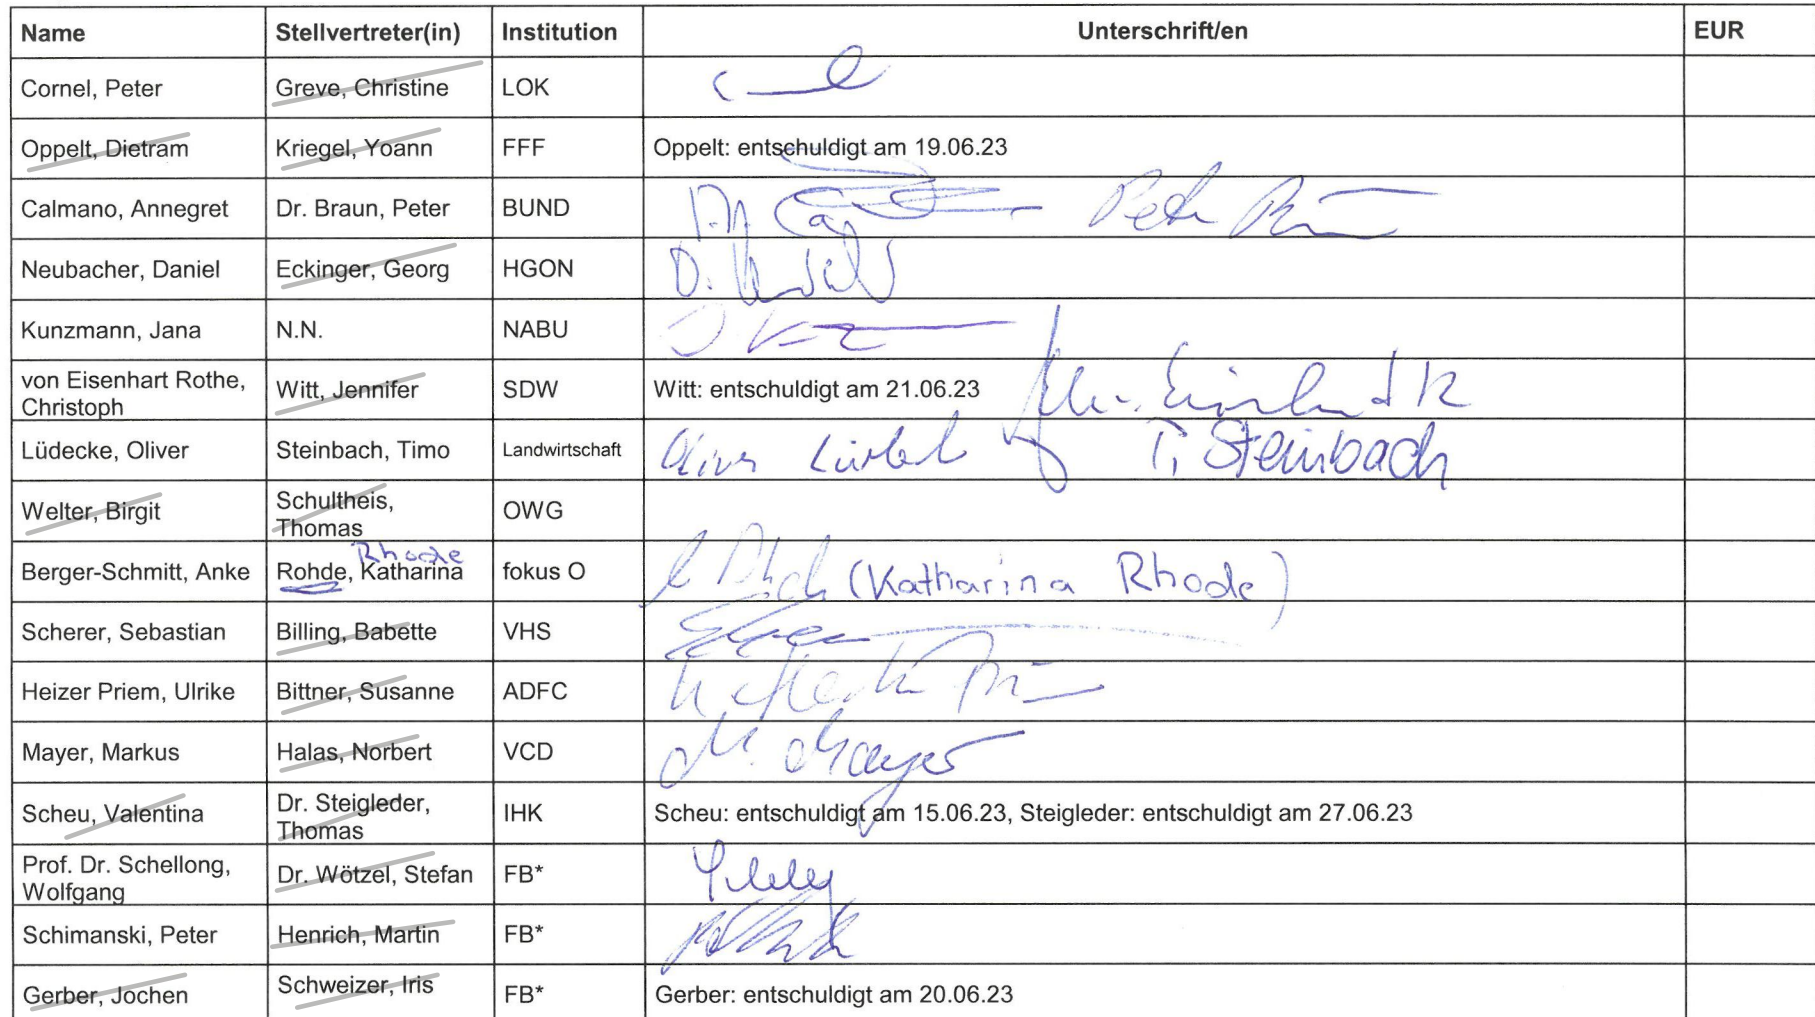 Name Stellvertreter(in) Institution Unterschrift/en EUR
Cornel, Peter Greve, Christine LOK
Oppelt, Dietram Kriegel, Yoann FFF Oppelt: entschuldigt am 19.06.23
Calmano, Annegret Dr. Braun, Peter BUND
Neubacher, Daniel Eckinger, Georg HGON
Kunzmann, Jana N.N. NABU
von Eisenhart Rothe,
Christoph Witt, Jennifer SDW Witt: entschuldigt am 21.06.23
Lüdecke, Oliver Steinbach, Timo Landwirtschaft T. Steinbach
Welter, Birgit Schultheis,
Thomas OWG
Rhode
Berger-Schmitt, Anke Rohde, Katharina fokus O (Katharina Rhode)
Scherer, Sebastian Billing, Babette VHS
Heizer Priem, Ulrike Bittner, Susanne ADFC
Mayer, Markus Halas, Norbert VCD M. Mayer
Scheu, Valentina Dr. Steigleder,
Thomas IHK Scheu: entschuldigt am 15.06.23, Steigleder: entschuldigt am 27.06.23
Prof. Dr. Schellong,
Wolfgang Dr. Wötzel, Stefan FB*
Schimanski, Peter Henrich, Martin FB*
Gerber, Jochen Schweizer, Iris FB* Gerber: entschuldigt am 20.06.23